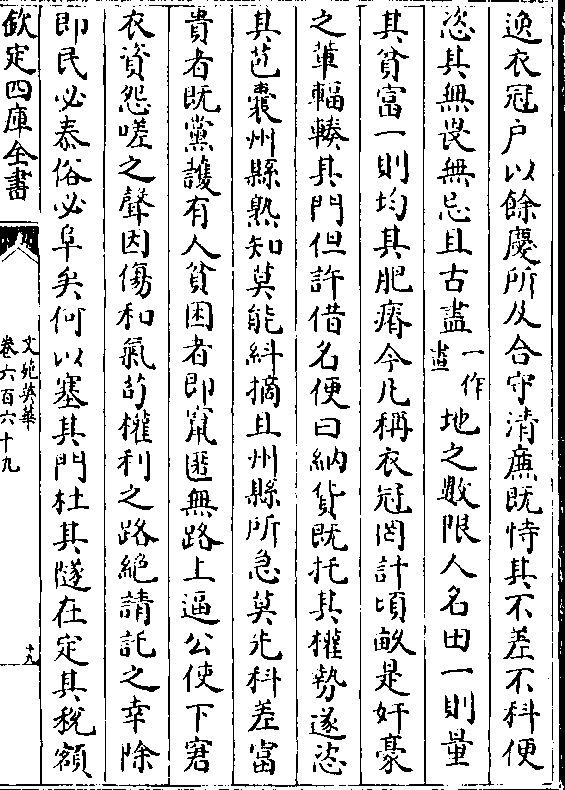 逸衣冠户以餘慶所及合守清廉既恃其不差不科便
恣其無畏無忌且古畫一作畫地之數限人名田一則量
其貧富一則均其肥瘠今凡稱衣冠罔計頃畝是奸豪
之軰輻輳其門但許借名便曰納貨既托其權勢遂恣
其苞囊州縣熟知莫能糾摘且州縣所急莫先科差富
貴者既黨護有人貧困者即竄匿無路上逼公使下窘
衣資怨嗟之聲因傷和氣茍權利之路絶請託之幸除
即民必泰俗必阜矣何以塞其門杜其隧在定其稅額
欽定四庫全書
文苑英華
卷六百六十九
十九